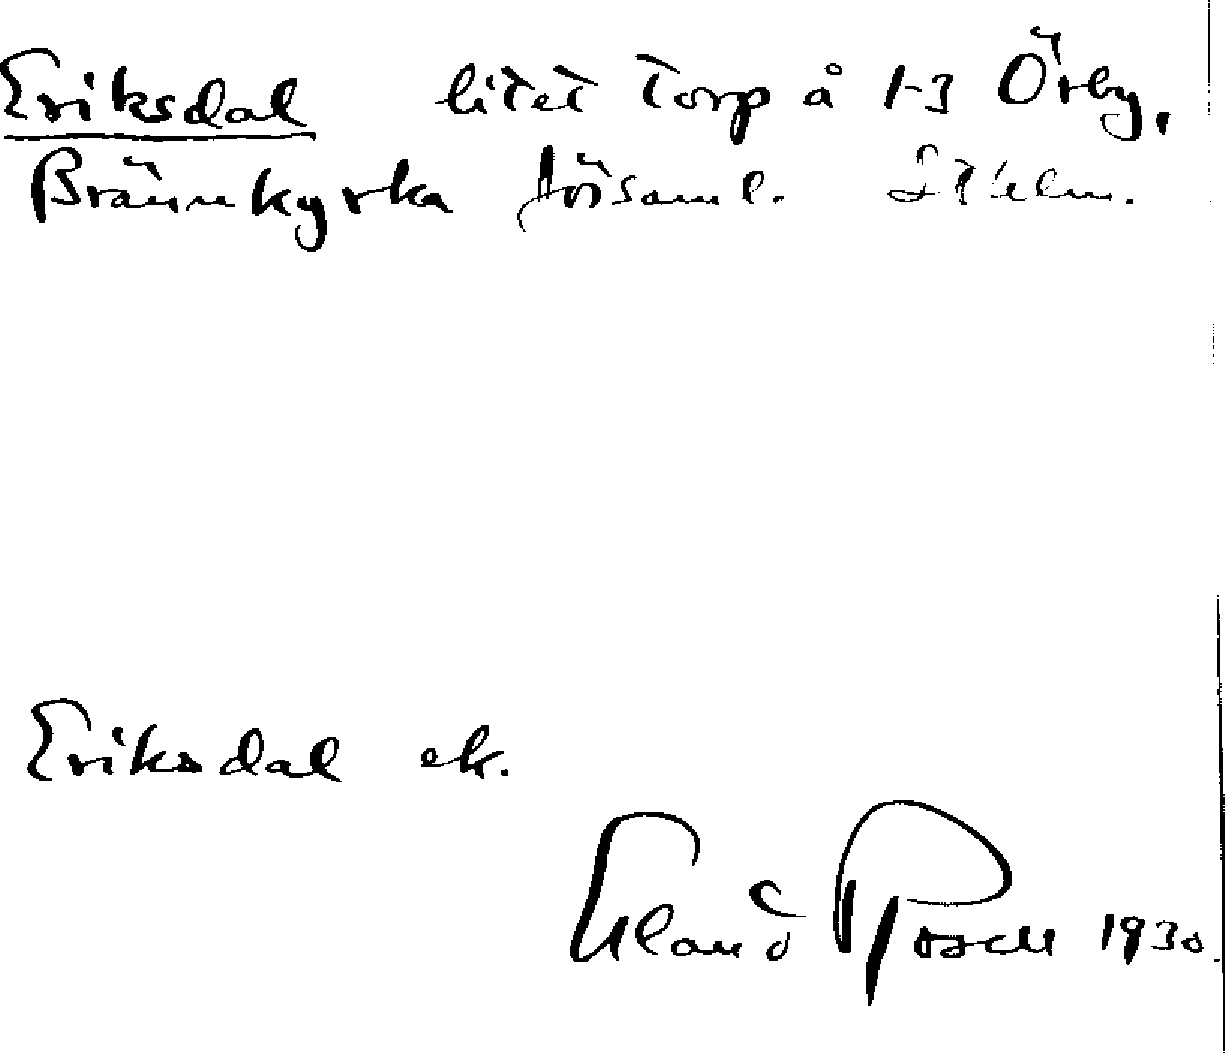 Eriksdal litet torp å 1-3 Örby,
Brännkyrka förs​aml. Sthlm.
Eriksdal ek.
Erland Rosell 1930.